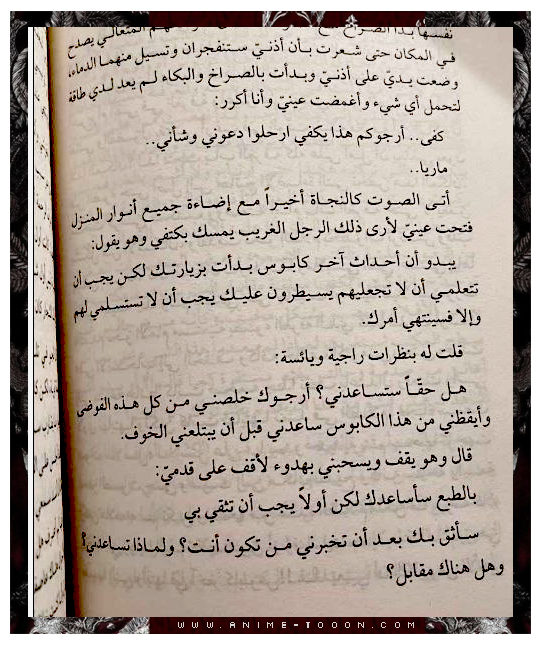 نفسها بدأ الصراخ
المتعالي يصدح
في المكان حتى شعرت بأن أذنيّ ستنفجران وتسيل منهما الدماء،
وضعت يديّ على أذنيّ وبدأت بالصراخ والبكاء لم يعد لدي طاقة
لتحمل أي شيء وأغمضت عينيّ وأنا أكرر:
كفى.. أرجوكم هذا يكفي ارحلوا دعوني وشأني..
ماريا..
أتى الصوت كالنجاة أخيراً مع إضاءة جميع أنوار المنزل
فتحت عينيّ لأرى ذلك الرجل الغريب يمسك بكتفي وهو يقول:
يبدو أن أحداث آخر كابوس بدأت بزيارتك لكن يجب أن
تتعلمي أن لا تجعليهم يسيطرون عليك يجب أن لا تستسلمي لهم
وإلا فسينتهي أمرك.
قلت له بنظرات راجية ويائسة:
هل حقّاً ستساعدني؟ أرجوك خلصني من كل هذه الفوضى
وأيقظني من هذا الكابوس ساعدني قبل أن يبتلعني الخوف.
قال وهو يقف ويسحبني بهدوء لأقف على قدميّ:
بالطبع سأساعدك لكن أولاً يجب أن تثقي بي
سأثق بك بعد أن تخبرني من تكون أنت؟ ولماذا تساعدني؟
وهل هناك مقابل؟
WWW.ANIME-TOOON.COM